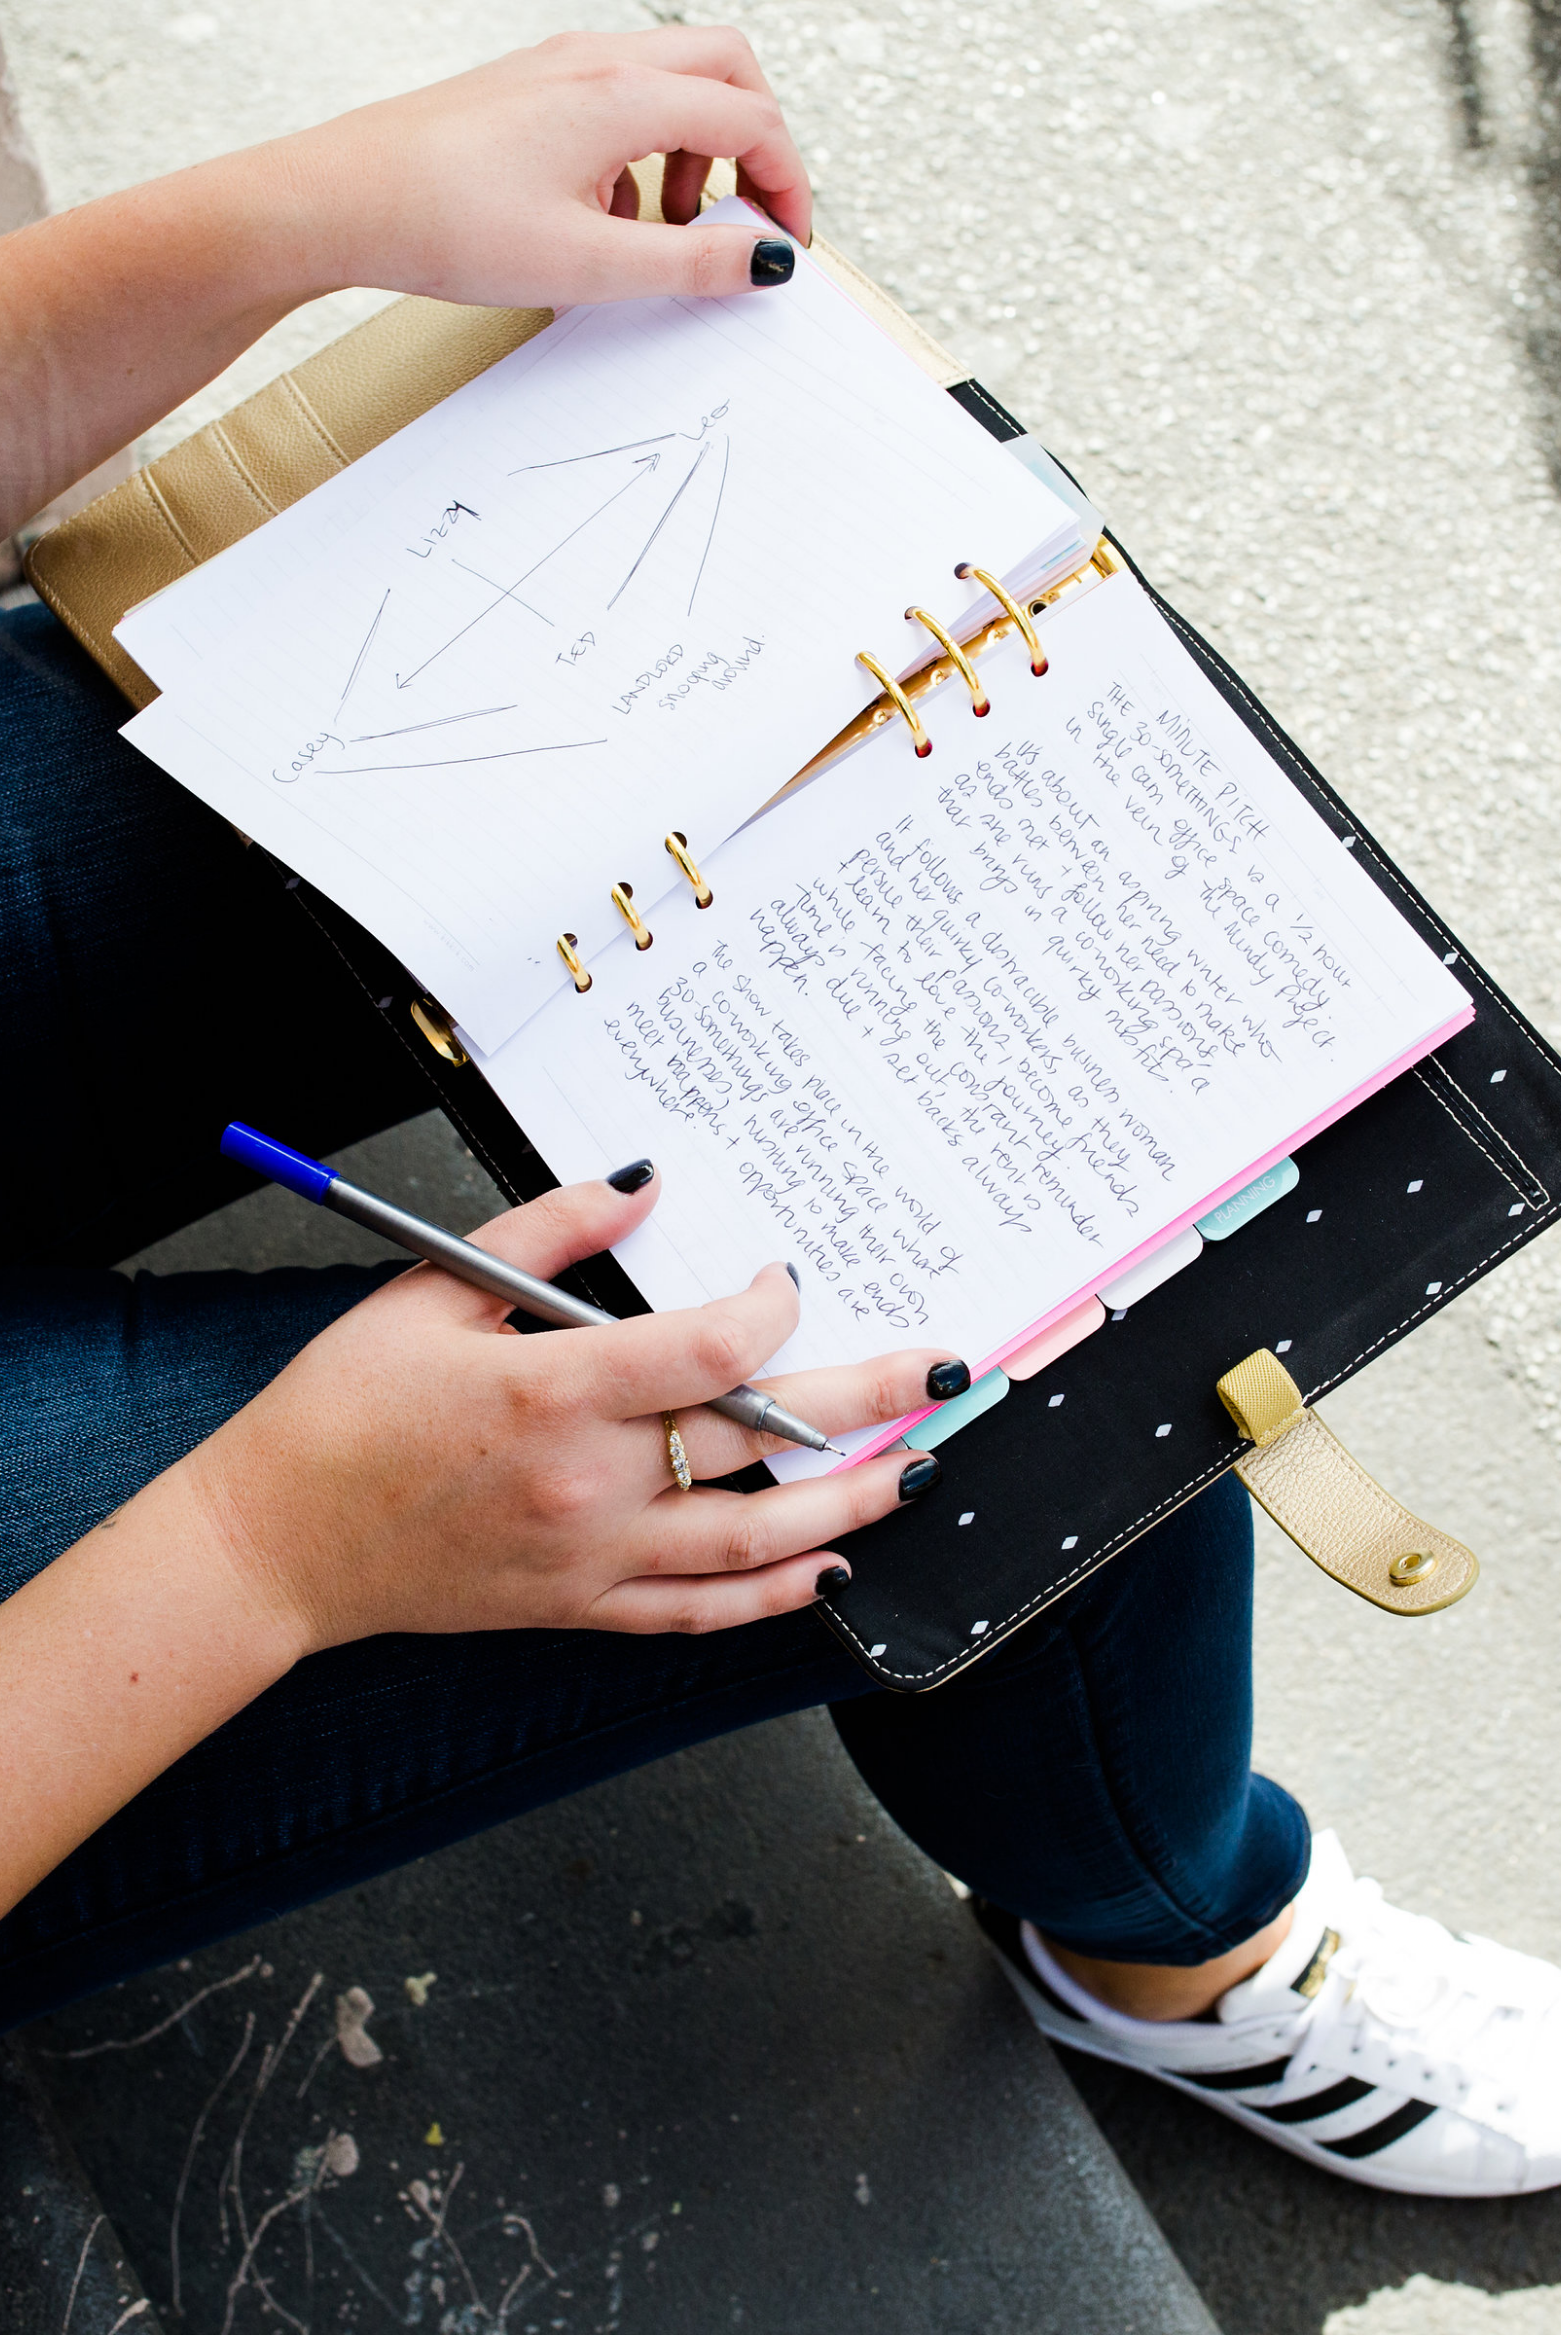 Leo
Lizzy
TED
LANDLORD
snooping
around.
Casey
MINUTE PITCH
THE 30-SOMETHINGS is a 1/2 hour
single cam office space comedy
in the vein of the Mindy Project.
It's about an aspiring writer who
battles between her need to make
ends met + follow her passions,
as she runs a coworking space
that brings in quirky misfits.
It follows a distracible business woman
and her quirky co-workers, as they
persue their passions, become friends
+ learn to love the journey
while facing the constant reminder
time is running out, the rent is
always due + set backs always
happen.
The show takes place in the world of
a co-working office space where
30-somethings are running their own
businesses, hustling to make ends
meet happens + opportunities are
everywhere.
PLANNING